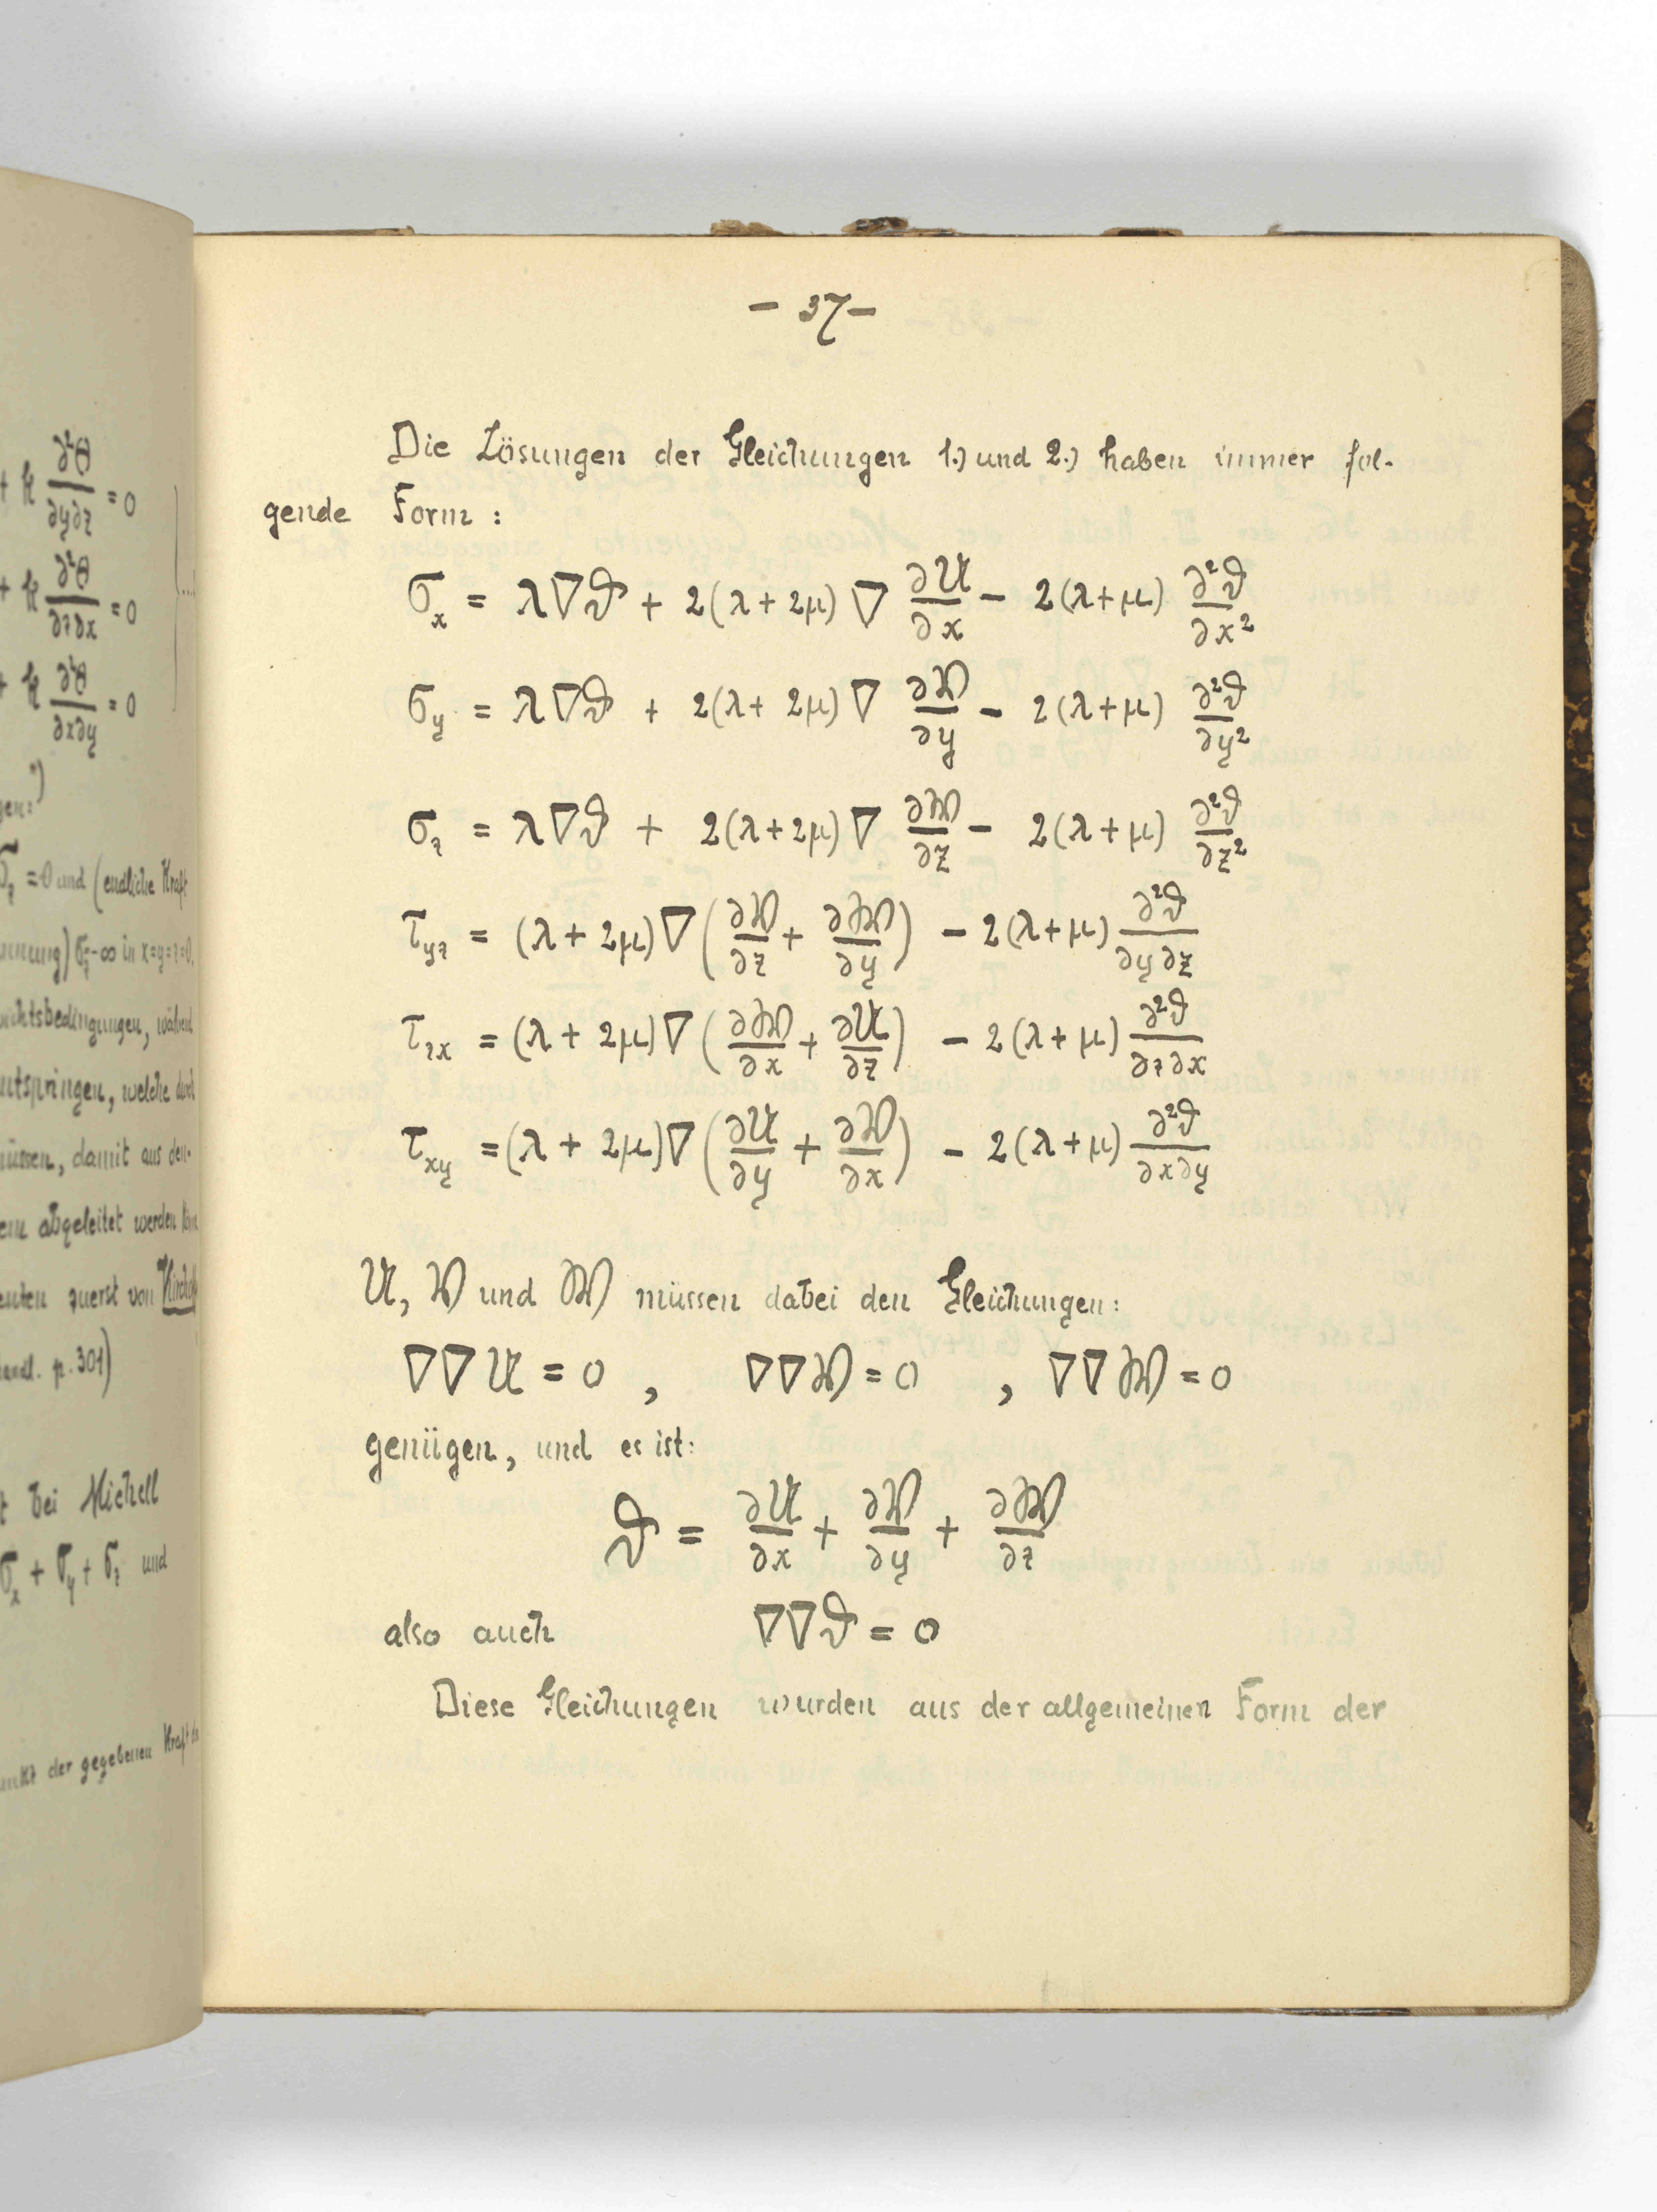 + k ∂²θ/∂y∂z = 0
+ k ∂²θ/∂z∂x = 0
+ k ∂²θ/∂x∂y = 0
σz = 0 und (endliche Kraft
in x=y=z=0,
während
entspringen, welche durch
müssen, damit aus den-
abgeleitet werden
zuerst von
p. 301)
bei Michell
σx + σy + σz und
der gegebenen Kraft
– 37 –
Die Lösungen der Gleichungen 1.) und 2.) haben immer fol-
gende Form :
σx = λ∇ϑ + 2(λ+2μ) ∇ ∂U/∂x – 2(λ+μ) ∂²ϑ/∂x²
σy = λ∇ϑ + 2(λ+2μ) ∇ ∂V/∂y – 2(λ+μ) ∂²ϑ/∂y²
σz = λ∇ϑ + 2(λ+2μ) ∇ ∂W/∂z – 2(λ+μ) ∂²ϑ/∂z²
τyz = (λ+2μ)∇(∂V/∂z + ∂W/∂y) – 2(λ+μ) ∂²ϑ/∂y∂z
τzx = (λ+2μ)∇(∂W/∂x + ∂U/∂z) – 2(λ+μ) ∂²ϑ/∂z∂x
τxy = (λ+2μ)∇(∂U/∂y + ∂V/∂x) – 2(λ+μ) ∂²ϑ/∂x∂y
U, V und W müssen dabei den Gleichungen:
∇∇U = 0 , ∇∇V = 0 , ∇∇W = 0
genügen, und es ist:
ϑ = ∂U/∂x + ∂V/∂y + ∂W/∂z
also auch ∇∇ϑ = 0
Diese Gleichungen wurden aus der allgemeinen Form der